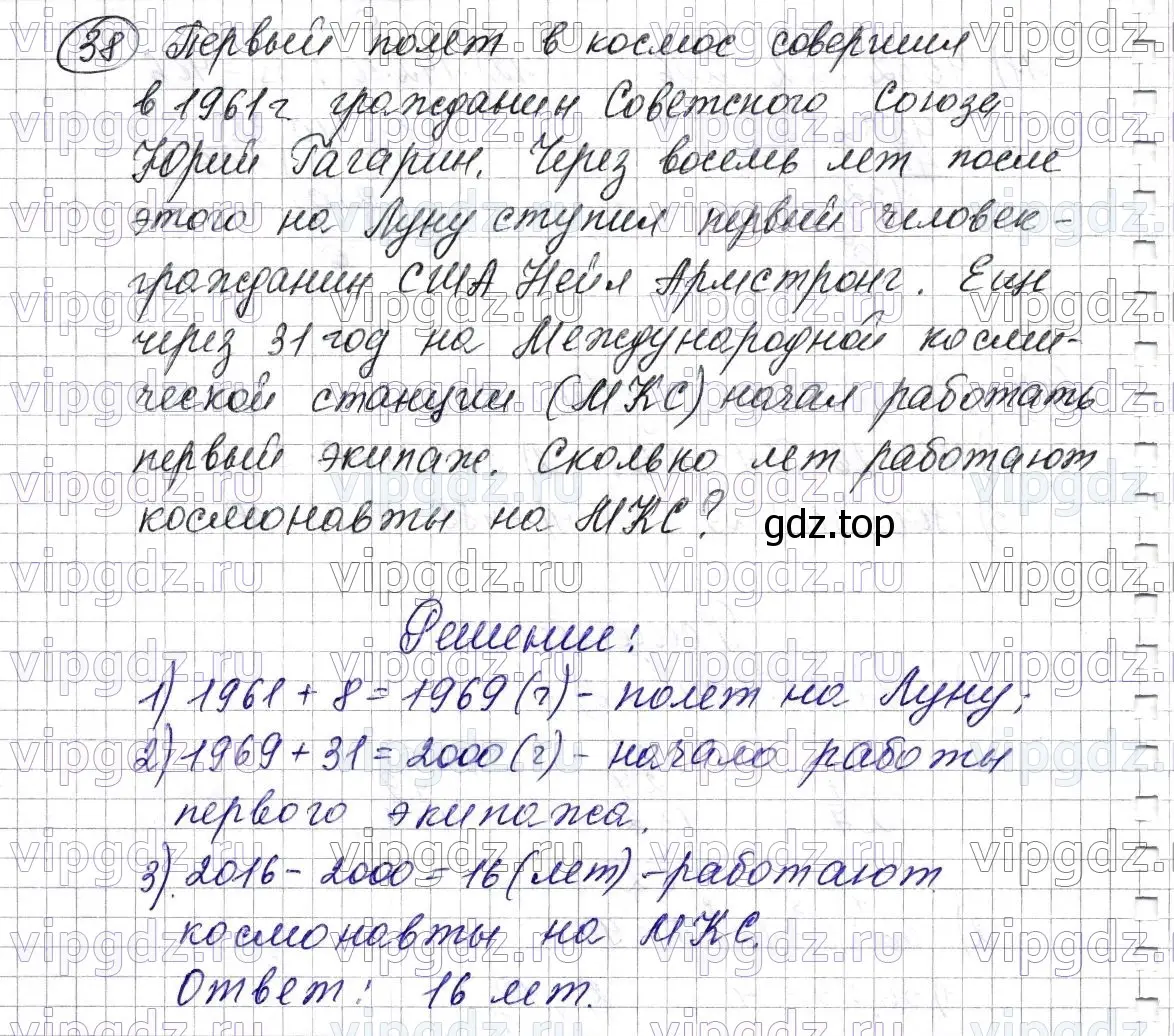 38 Первый полет в космос совершил
в 1961 г. гражданин Советского Союза
Юрий Гагарин. Через восемь лет после
этого на Луну ступил первый человек -
гражданин США Нейл Армстронг. Еще
через 31 год на Международной косми-
ческой станции (МКС) начал работать
первый экипаж. Сколько лет работают
космонавты на МКС?
gdz.top
Решение:
1) 1961 + 8 = 1969 (г) - полет на Луну;
2) 1969 + 31 = 2000 (г) - начало работы
первого экипажа.
3) 2016 - 2000 = 16 (лет) - работают
космонавты на МКС.
Ответ: 16 лет.
vipgdz.ru